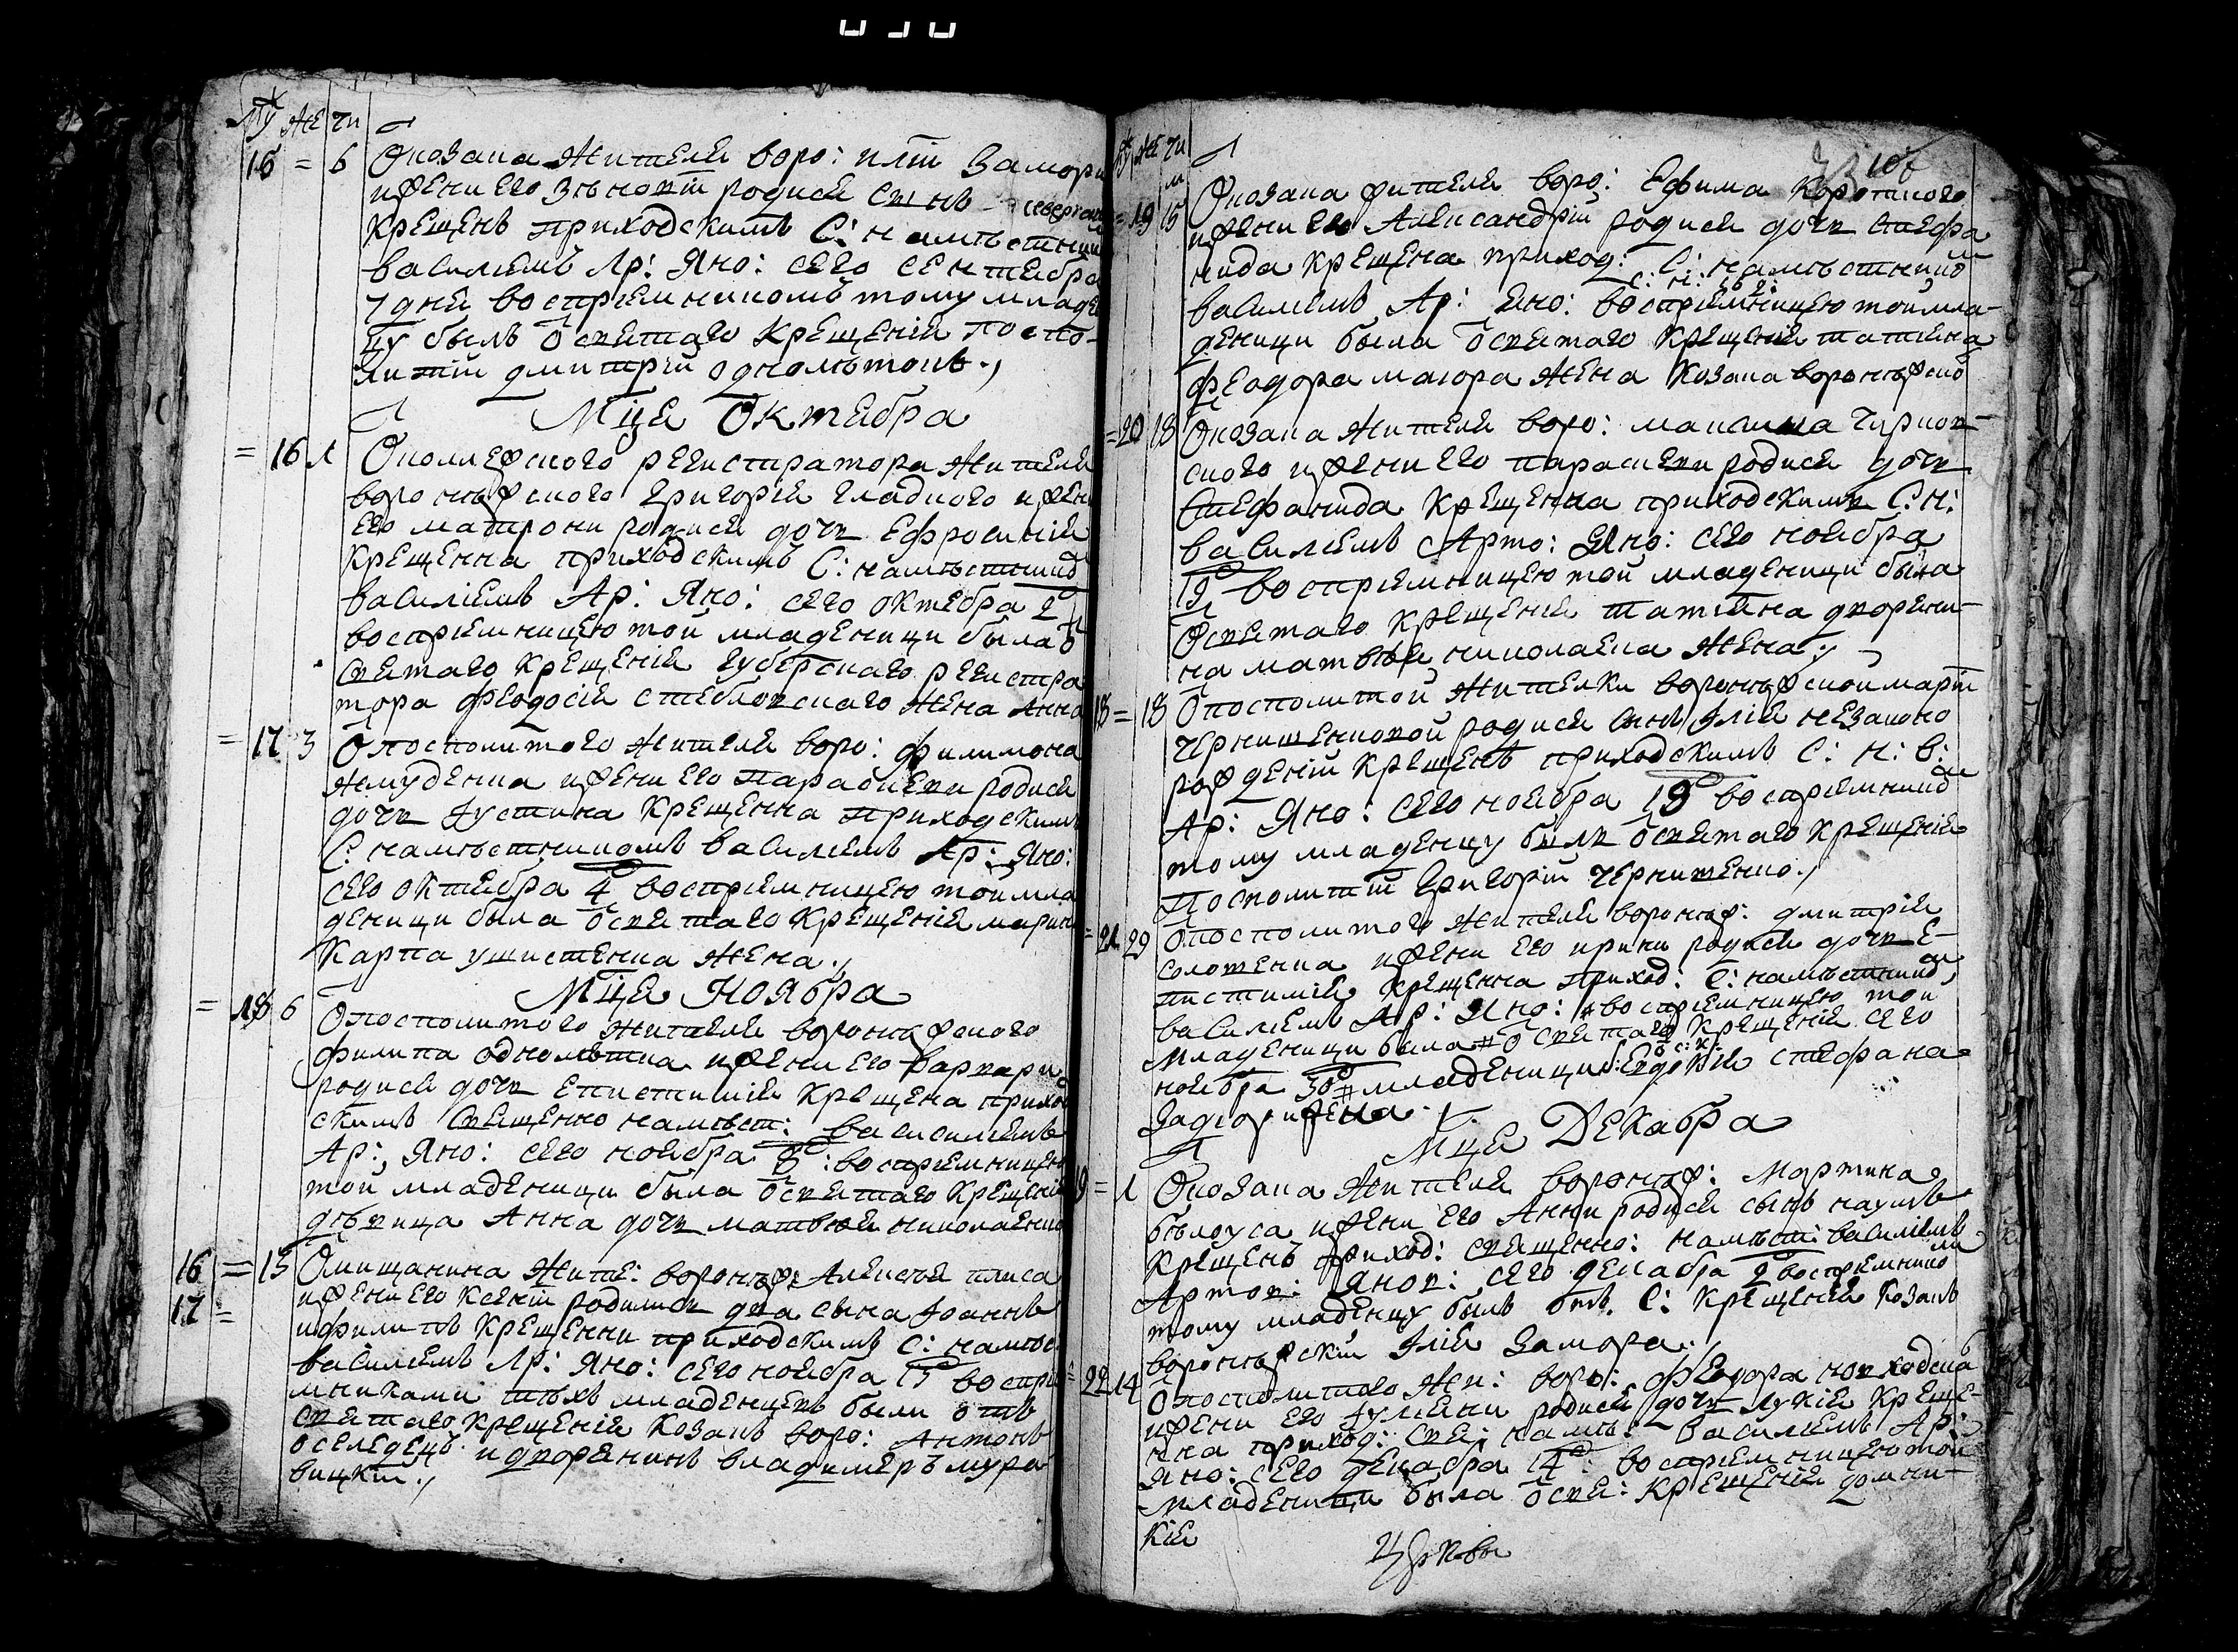 Му же чи
15 = 6 Окозака жителя воро: илїи Замори
ижени его Зѣновїи родися сынъ северїанъ
Крещенъ приходскимъ С: намѣстник
василиемъ Ар: Яно: сего сентебра
7 дня воспрїемникомъ тому младен
цу былъ ѿ святаго Крещенїя поспо-
литїй дмитрїй однолѣтокъ.,
Мца Октебра
= 16 1 Околлежского регистратора жителя
воронѣжского григорїя гладкого ижени
его матрони родися дочъ Ефросинїя
Крещенна приходскимъ С: намѣстником
василїемъ Ар: Яно: сего октебра 2
воспрїемницею той младеници была ѿ
святаго Крещенїя губерскаго регистра
тора феодосїя стебловскаго жена анна
= 17 3 Опосполитого жителя воро: филимона
жмуденка ижени его параскеви родися
дочъ Іустина Крещенна приходскимъ
С: намѣстникомъ василиемъ Ар: Яно:
сего октебра 4 воспрїемницею той мла
деници была ѿ святаго Крещенїя марин
Карпа жена.,
Мца Ноября
= 18 6 Опосполитого жителя воронѣжского
филипа однолѣтка ижени его варвари
родися дочъ епистимїя Крещена прихо
скимъ Священно намѣст: василиемъ
Ар: Яно: сего ноебра 6: воспрїемницею
той младеници была ѿ святаго Крещенїя
дѣвица Анна дочъ матвѣя николаенка
16 = 15 Омищанина жите: воронѣж: Алексѣя плиса
17 = ижени его Ксенїи родилися два сына Іоаннъ
ифилипъ Крещенни приходскимъ С: намѣс
василиемъ Ар: Яно: сего ноебра 15 воспрїе
мниками тѣхъ младенцевъ были ѿтъ
святаго Крещенїя Козакъ воро: Антонъ
оселедецъ идворенинъ владимеръ мура
вицкїи.,
Му же чи
107
= 19 15 Окозака жителя воро: Ефима Короткого
ижени его Александрїи родися дочъ стефа
нида Крещена приход: С: намѣстником
С: К: 16 2:
василиемъ Ар: Яно: воспрїемницею той мла-
деници была ѿ святаго Крещенїя татїяна
феодора маюра жена Козака воронѣжско
= 20 18 Окозака жителя воро: максима
ского ижени его параскеви родися дочъ
Стефанида Крещенна приходскимъ С: Н:
василиемъ Арто: Яно: сего ноебра
19 воспрїемницею той младеници была
ѿ святаго Крещенїя татїяна дворени-
на матвѣя николаева жена.,
18 = 18 Опосполитой жителки воронѣжской марїи
чернишенковой родися сынъ Ілїя незаконо
рожденїй Крещенъ приходскимъ С: Н: В:
Ар: Яно: сего ноебра 19 воспрїемником
тому младенцу былъ ѿ святаго Крещенїя
Посполитїй григорїй чернишенко.,
= 21 29 Опосполитого жителя воронѣж: дмитрїя
ижени его ирини родися дочъ Е-
пистимїя Крещенна приход: С: намѣстником
василиемъ Ар: Яно: # воспрїемницею той
младеници была # ѿ святаго Крещенїя сего
ноебра 30 # младеници: Евдокїя стефана
ѿ с: к:
жена.
Мца Декабра
19 = 1 Окозака жителя воронѣж: Мартина
бѣлоуса ижени его Анни родися сынъ наумъ
Крещенъ приход: священно: намѣст: василиемъ
Артов: Янов: сего декабра 2 воспрїемником
тому младенцу былъ ѿтъ С: Крещенїя Козакъ
воронѣжскїй Ілїя замора.,
= 22 14 Опосполитого жи: воро: феодора
ижени его Іулїяни родися дочъ Лукїя Креще-
нна приход: свя: намѣ: василиемъ Ар:
Яно: сего декабра 14: воспрїемницею той
младеници была ѿ свя: Крещенїя домни-
кїя
Церкви